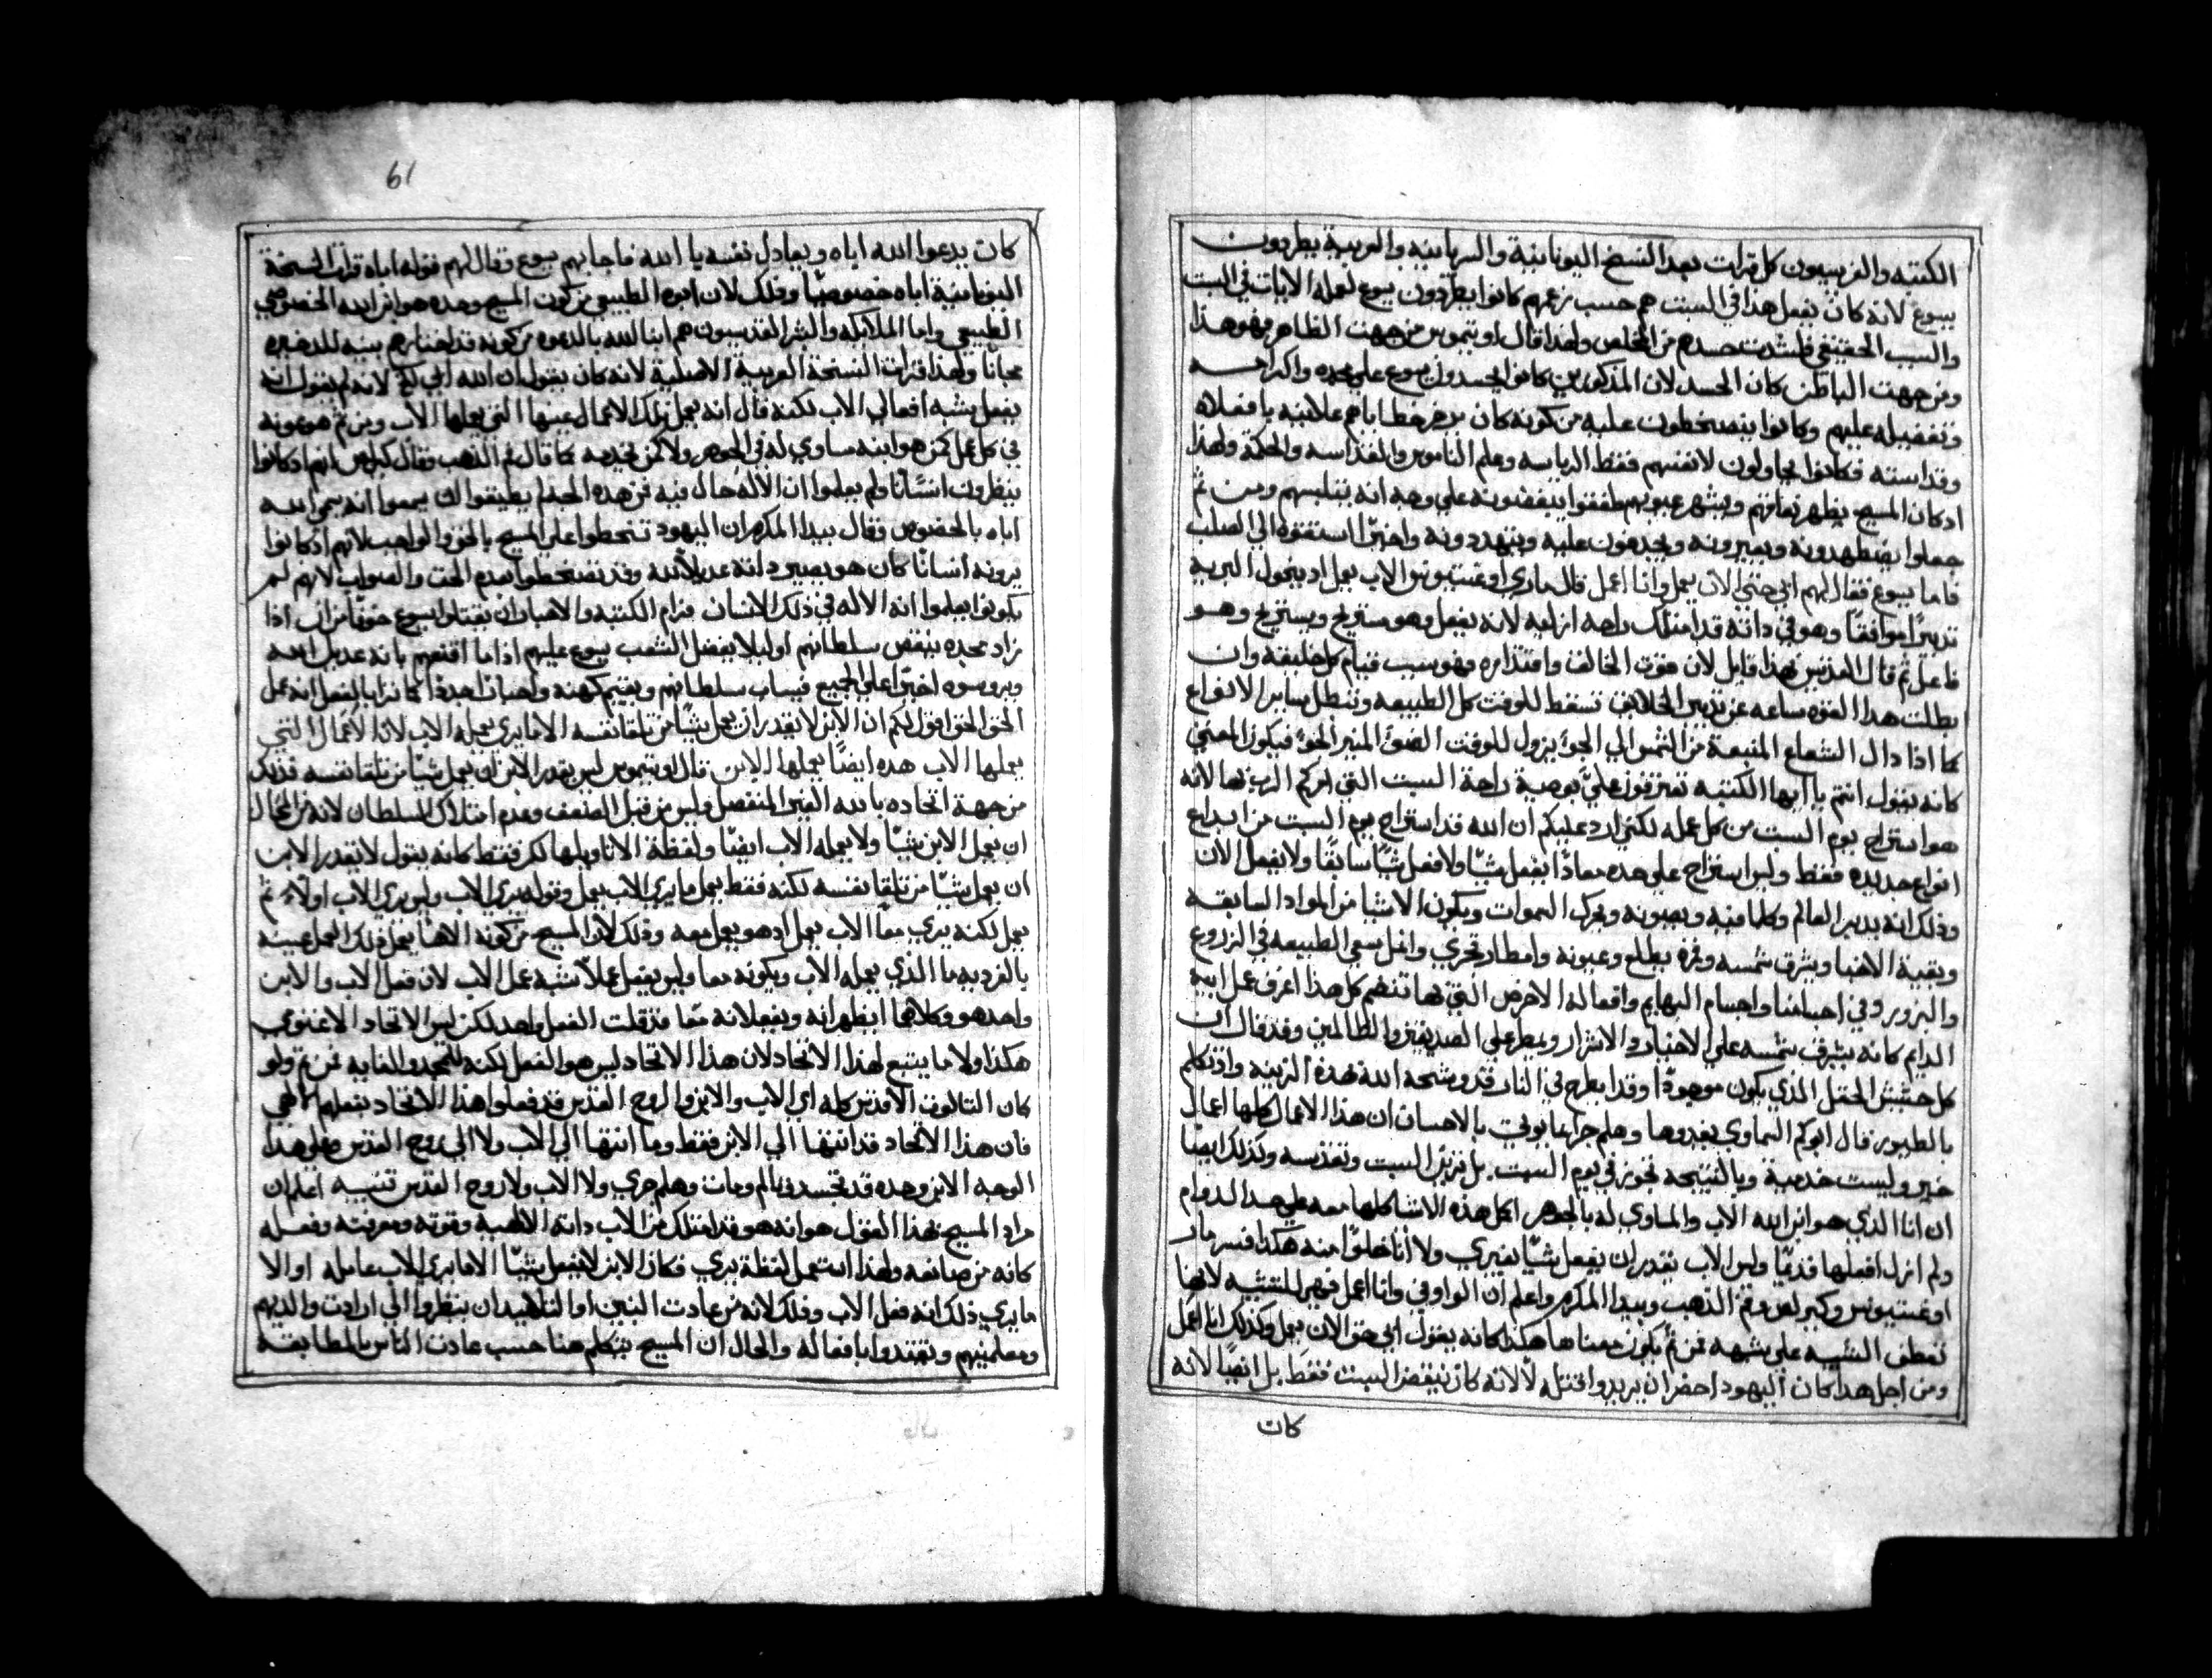 الكتبه والفريسيون كل قرات بعد النسخ اليونانية والسريانيه والعربية يطردون
يسوع لانه كان يفعل هذا في السبت هم حسب زعمهم كانوا يطردون يسوع لعمله الايات في السبت
والسبب الحقيقي فلشدت حسدهم من المخلص ولهذا قال اوتيموس من جهت الظاهر فهو هذا
ومن جهت الباطن كان الحسد لان المذكورين كانوا يحسدون يسوع على مجده واكرامه
وتفضيله عليهم وكانوا يتسخطون عليه من كونه كان يدحض خطاياهم علانيه بافعاله
وقداسته فكانوا يحاولون لانفسهم فقط الرياسه وعلم الناموس والقداسه والحكمة ولهذا
اد كان المسيح يظهر نفاقهم ويشهر عيوبهم طفقوا يبغضونه على وجه انه يتلبسهم ومن ثم
جعلوا يضطهدونه ويعيرونه ويجدفون عليه ويتهددونه واخيرًا استقوه الي الصلب
فاما يسوع فقال لهم ابي حتى الان يعمل وانا اعمل قال ماري اوغسطينوس الاب يعمل اد يخول البريه
تدبيرًا موافقًا وهو في داته قد امتلك راحه ازليه لانه يفعل وهو مستريح ويستريح وهو
فاعل ثم قال القديس هذا قايل لان قوت الخالق واقتداره فهو سبب قيام كل خليقه وان
بطلت هذا القوه ساعه عن تدبير الخلايق تسقط للوقت كل الطبيعه وتبطل ساير الانواع
كما اذا دال الشعاع المنبعة من الشمس الي الجو يزول للوقت الضو المنير الجو فيكون المعني
كانه يقول انتم يا ايها الكتبه تعترفون علي بوصية راحة السبت التي امركم الرب بها لانه
هو استراح يوم السبت من كل عمله لكني ارد عليكم ان الله قد استراح يوم السبت من ابداع
انواع جديده فقط وليس استراح على هده معادًا يفعل شيًا ولا فعل شيًا سابقًا ولا يفعل الان
ودلك انه يدبر العالم وكلما فيه ويصونه ويحرك السموات ويكون الاشيا من المواد السابقه
ويقية الاحيا ويشرق شمسه وقمره يطلع وعيونه وامطار تجري وافل يسعي الطبيعه في الزروع
والبزور وفي اجسامنا واجسام البهايم وافعاله الارض التي بها تنضم كل هذا اعرف عمل ابيه
الدايم كانه يشرق شمسه على الاخيار والاشرار ويمطر على الصديقين والظالمين وقد قال ان
كل حشيش الحقل الذي يكون موجودًا وقدا يطرح في النار قد وشحه الله هذه الزينه واذ تكلم
بالطيور قال ابوكم السماوي يغدوها وهلم جرا بما يوتي بالاحسان ان هذا الاعمال كلها اعمال
خير وليست خدمية وبالنتيجه تجوز في يوم السبت بل تزين السبت وتقدسه وكذلك ايضًا
ان انا الذي هو ابن الله الاب والمساوي له بالجوهر اكل هذه الاشيا كلها معه على هدا الدوام
ولم ازل افعلها قديمًا وليس الاب يقدر ان يفعل شيًا بغيري ولا أنا خلوًا منه هكذا فسر مار
اوغسطينوس وكيرلس وفم الذهب وبيدا المكرم واعلم أن الواو في وانا اعمل فهي للتشبه لانها
تعطف التشبيه على شبهه فمن ثم يكون معناها هكذا كانه يقول ابي حتى الان يعمل وكذلك انا اعمل
ومن اجل هدا كان اليهود احضر ان يريدوا قتله لا لانه كان ينقض السبت فقط بل ايضًا لانه
كان
61
كان يدعوا الله اباه ويعادل نفسه يا الله فاجابهم يسوع وقال لهم قوله اباه قرات النسخة
اليونانية اباه خصوصيًا ودلك لان ابوه الطبيعي من كون المسيح وحده هو ابن الله الخصوصي
الطبيعي واما الملايكه والبشر المقديسون هم ابنا الله بالدعوه من كونه قد اختارهم بنيه للدخيره
مجانًا ولهذا قرات النسخة العربية الاصلية لانه كان يقول ان الله ابي لي لانه لم يقول انه
يفعل يشبه افعال الاب لكنه قال انه يعمل تلك الاعمال عينها التي يعملها الاب ومن ثم هو عونه
في كل عمل كمن هو ابنه مساوي له في الجوهر ولا كمن يخدمه كما قال فم الذهب وقال كيرلس انهم اد كانوا
ينظرون انسانًا ولم يعلموا ان الاله حال فيه فمن هده الجهة لم يطيقوا ان يسمعوا انه يسمي الله
اباه بالخصوص وقال بيدا المكرم ان اليهود تسخطوا على المسيح بالحق والواجب لانهم اد كانوا
يرونه انسانًا كان هو يصير داته عديلاً لله وقد تسخطوا بعدم الحق والصواب لانهم لم
يكونوا يعلموا انه الاله في ذلك الانسان فرام الكتبه والاحبار ان يقتلوا يسوع خوفًا من ان اذا
زاد مجده ينقض سلطانهم او ليلا يفضل الشعب يسوع عليهم اذا ما اقنعهم بانه عديل الله
ويروسوه اخيرًا على الجميع فيساب سلطانهم ويقيم كهنه واحبارًا جددًا كما نرا بالفعل انه عمل
الحق الحق اقول لكم ان الابن لا يقدر ان يعمل شيًا من تلقا نفسه الا ما يري يعمله الاب لان الاعمال التي
يعملها الاب هده ايضًا يعملها الابن قال اوتيموس ليس يقدر الابن ان يعمل شيًا من تلقا نفسه فدلك
من جهة اتحاده بالله الغير المنفصل وليس من قبل الضعف وعدم امتلاك السلطان لانه من المحال
ان يعمل الابن شيًا ولا يعمله الاب ايضًا ولفظة الا تاويلها لكن فقط كانه يقول لا يقدر الابن
ان يعمل شيًا من تلقا نفسه لكنه فقط يعمل ما يري الاب يعمل وقوله يري الاب وليس يري الاب اولاً ثم
يعمل لكنه يري معًا الاب يعمل اد هو يعمل معه ودلك لان المسيح من كونه الاهًا يعمل دلك العمل عينه
بالفرديه ما الذي يعمله الاب ويكونه معا وليس يفعل عملاً شبه عمل الاب لان فعل الاب والابن
واحد هو وكلاهما ابظهرانه ويفعلانه معًا فدقلت الفعل واحد لكن ليس الاتحاد الاغنومي
هكذا ولا ما يتبع لهذا الاتحاد لان هذا الاتحاد ليس هو الفعل لكنه للتجسد والغايه فمن ثم ولو
كان التالوت الاقدس كله اي الاب والابن والروح القدس قد فعلوا هذا الاتحاد بفعلهم الالهي
فان هذا الاتحاد قد انتها الي الابن فقط وما انتها الي الاب ولا الي روح القدس وعلي هدا
الوجه الابن وحده قد تجسد وتالم ومات وهلم جري ولا الاب ولا روح القدس تنبيه اعلم ان
مراد المسيح بهذا القول هو انه هو قد امتلك من الاب داته الالهيه وقوته ومعرفته وفعله
كانه من صانعه ولهذا استعمل لفظة يري فكان الابن لا يفعل شيًا الا ما يري الاب عامله او الا
ما يري ذلك انه فعل الاب ودلك لانه من عادت البنين او التلاميد ان ينظروا الي ارادت والديهم
ومعلمينهم ويقتدوا بافعاله والحال ان المسيح يتكلم هنا حسب عادت الناس بالمطابقه